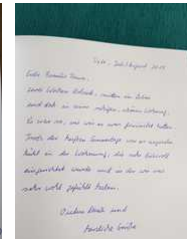 Juli/August 2018
Liebe Familie
zwei Wochen Urlaub, mitten in
und doch in einer ruhigen, schönen Wohnung.
Es war so, wie wir es uns gewünscht hatten.
Trotz der heißen Sommertage war es angenehm
kühl in der Wohnung, die sehr liebevoll
eingerichtet wurde und in der wir uns
sehr wohl gefühlt haben.
Vielen Dank und
herzliche Grüße